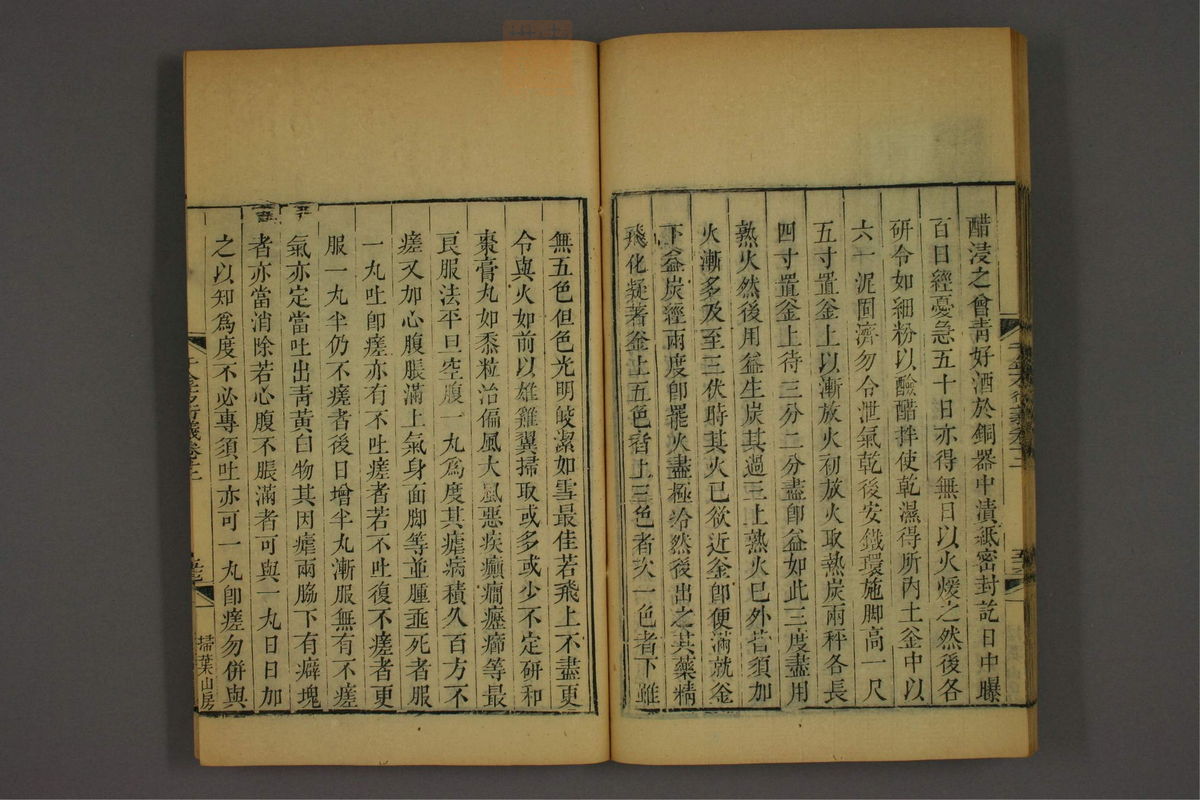 醋浸之曾青好酒於銅器中漬紙密封訖日中曝
百日經憂急五十日亦得無日以火煖之然後各
研令如細粉以釅醋拌使乾濕得所內土釜中以
六一泥固濟勿令泄氣乾後安鐵環施脚高一尺
五寸置釜上以漸放火初放火取熟炭兩秤各長
四寸置釜上待三分二分盡即益如此三度盡用
熟火然後用益生炭其過三上熟火已外皆須加
火漸多及至三伏時其火已欲近釜即便滿就釜
下益炭經兩度即罷火盡極冷然後出之其藥精
飛化凝著釜上五色者上三色者次一色者下雖
無五色但色光明皎潔如雪最佳若飛上不盡更
令與火如前以雄雞翼掃取或多或少不定研和
棗膏丸如黍粒治偏風大風惡疾癲癎癧癤等最
良服法平旦空腹一丸爲度其瘧病積久百方不
瘥又加心腹脹滿上氣身面脚等並腫垂死者服
一丸吐即瘥亦有不吐瘥者若不吐復不瘥者更
服一丸半仍不瘥者後日增半丸漸服無有不瘥
氣亦定當吐出青黃白物其因瘧兩脇下有癖塊
者亦當消除若心腹不脹滿者可與一丸日日加
之以知爲度不必專須吐亦可一丸即瘥勿併與
千金方衍義卷十二
掃葉山房